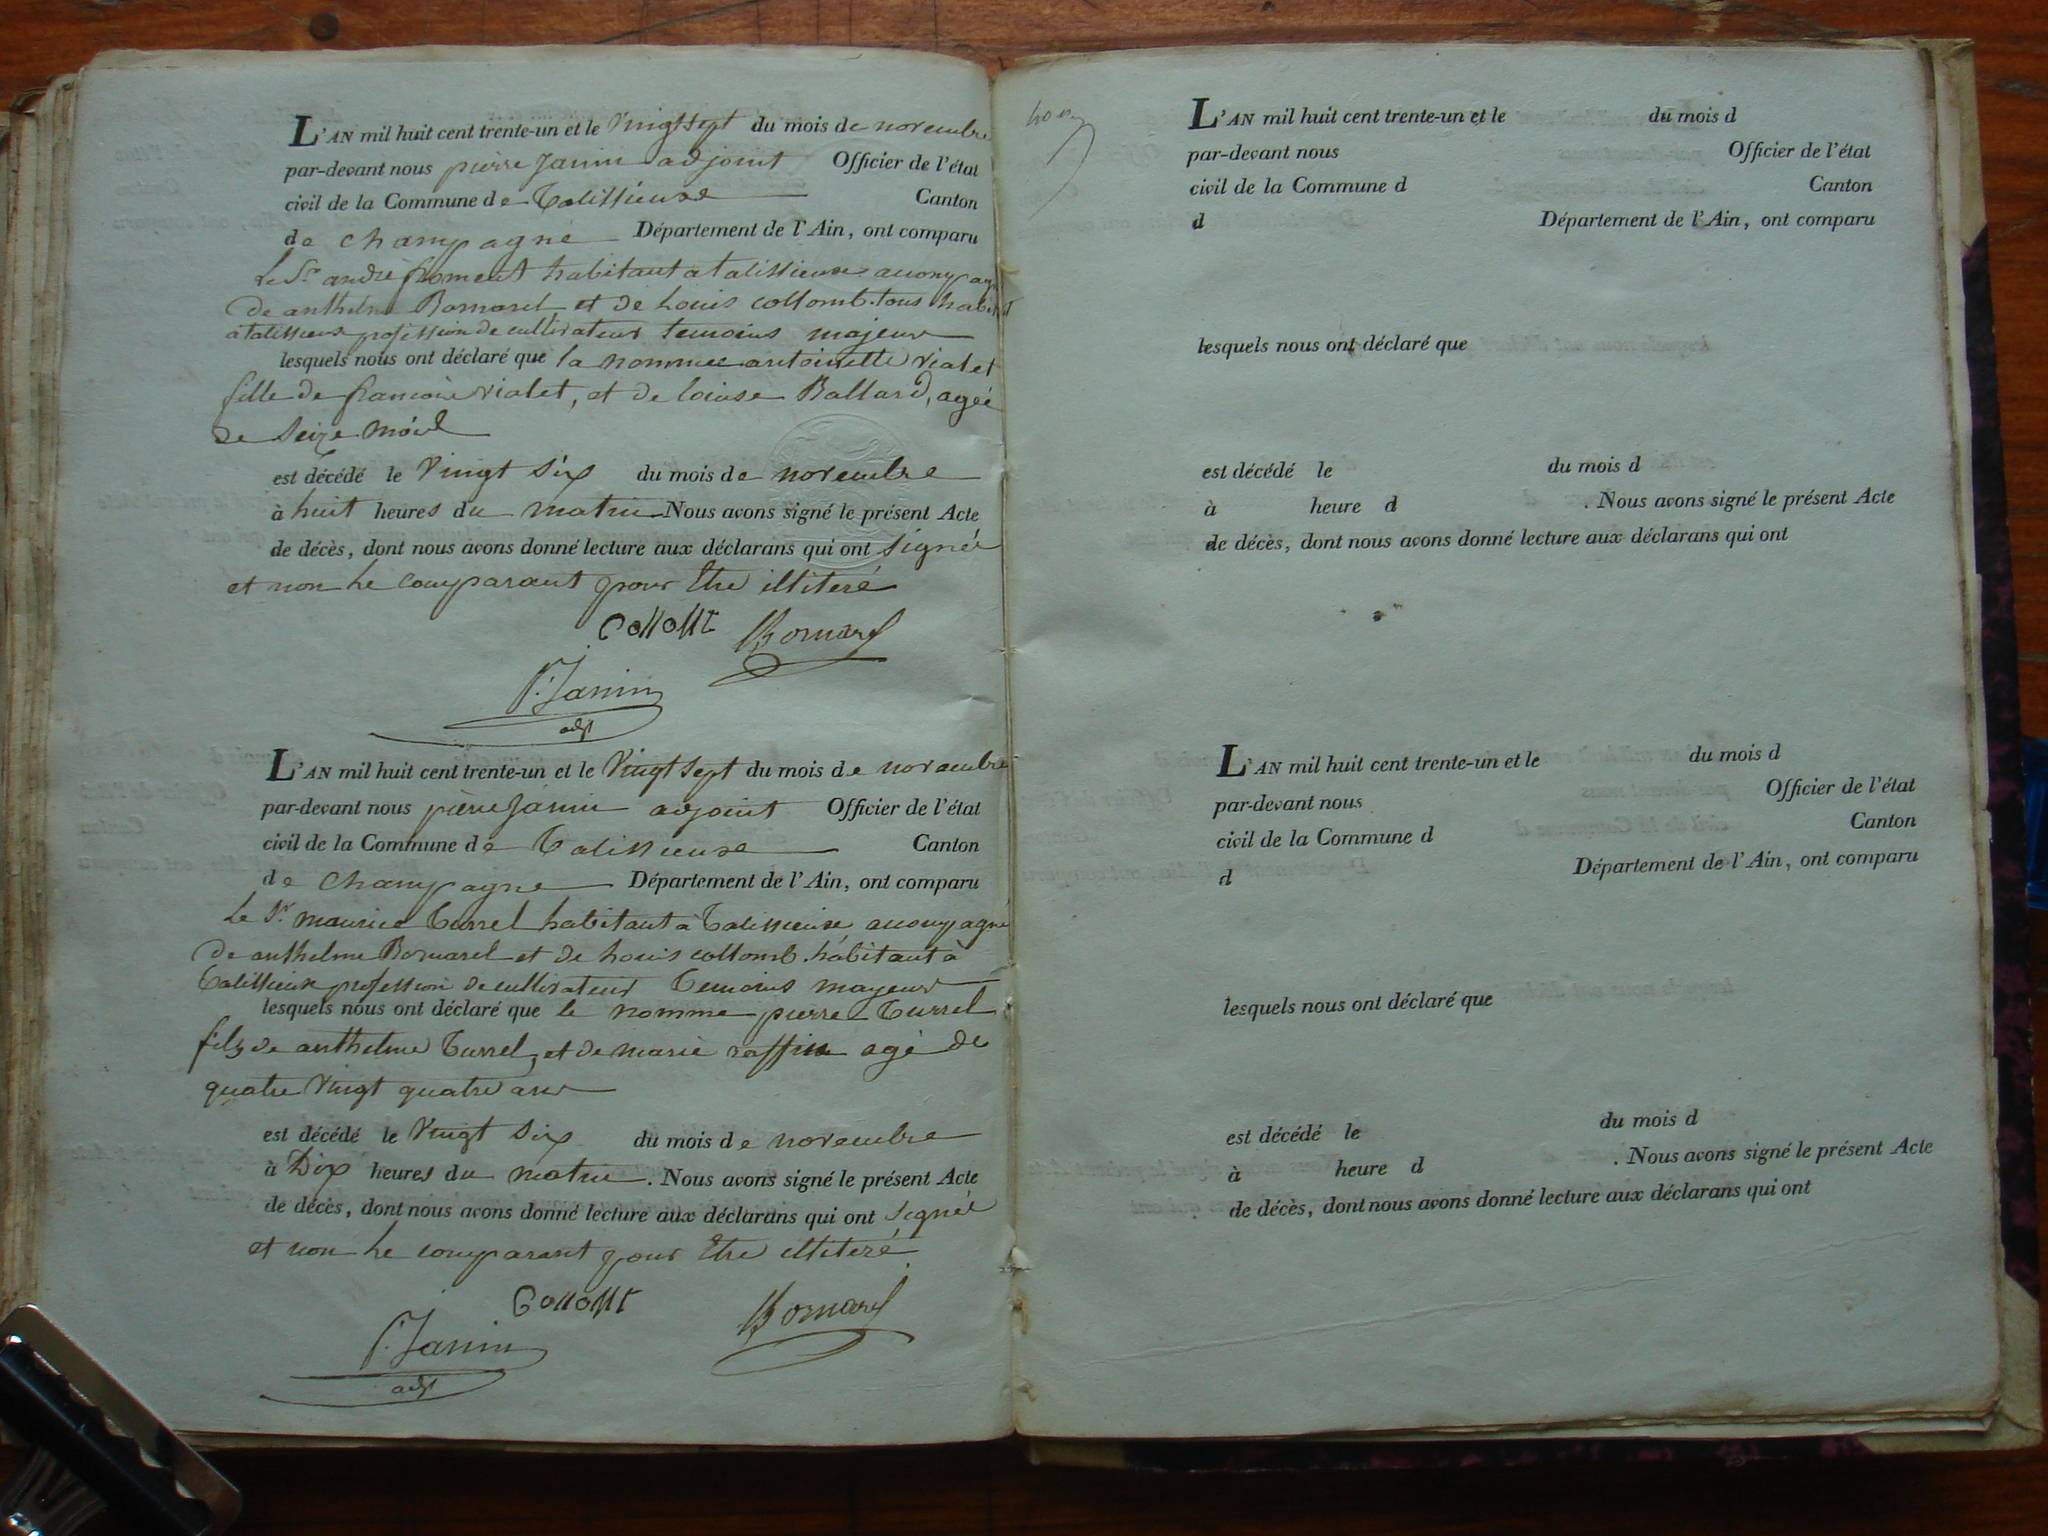 L'AN mil huit cent trente-un et le vingt sept du mois de novembre
par-devant nous pierre Janin adjoint Officier de l'état
civil de la Commune de Talissieux Canton
de champagne Département de l'Ain, ont comparu
le Sr andré froment habitant a talissieux accompagné
de anthelme Bornarel et de Louis collomb tous habit
a talissieux profession de cultivateur temoins majeur
lesquels nous ont déclaré que la nommee antoinette vialet
fille de francois vialet, et de louise Ballard, agée
de Seize mois
est décédé le vingt six du mois de novembre
à huit heures du matin Nous avons signé le présent Acte
de décès, dont nous avons donné lecture aux déclarans qui ont signés
et non le comparant pour Etre illiteré
Bornarel
P. Janin
adj
L'AN mil huit cent trente-un et le vingt sept du mois de novembre
par-devant nous pierre Janin adjoint Officier de l'état
civil de la Commune de Talissieux Canton
de champagne Département de l'Ain, ont comparu
le Sr maurice Turrel habitant à Talissieux accompagné
de anthelme Bornarel et de Louis collomb habitant à
Talissieux profession de cultivateur Temoins mayeur
lesquels nous ont déclaré que le nomme pierre Turrel
fils de anthelme Turrel, et de marie raffin agé de
quatre vingt quatre ans
est décédé le vingt six du mois de novembre
à Dix heures du matin. Nous avons signé le présent Acte
de décès, dont nous avons donné lecture aux déclarans qui ont signés
et non le comparant pour Etre illiteré
Bornarel
P. Janin
adj
L'AN mil huit cent trente-un et le du mois d
par-devant nous Officier de l'état
civil de la Commune d Canton
d Département de l'Ain, ont comparu
lesquels nous ont déclaré que
est décédé le du mois d
à heure d . Nous avons signé le présent Acte
de décès, dont nous avons donné lecture aux déclarans qui ont
L'AN mil huit cent trente-un et le du mois d
par-devant nous Officier de l'état
civil de la Commune d Canton
d Département de l'Ain, ont comparu
lesquels nous ont déclaré que
est décédé le du mois d
à heure d . Nous avons signé le présent Acte
de décès, dont nous avons donné lecture aux déclarans qui ont